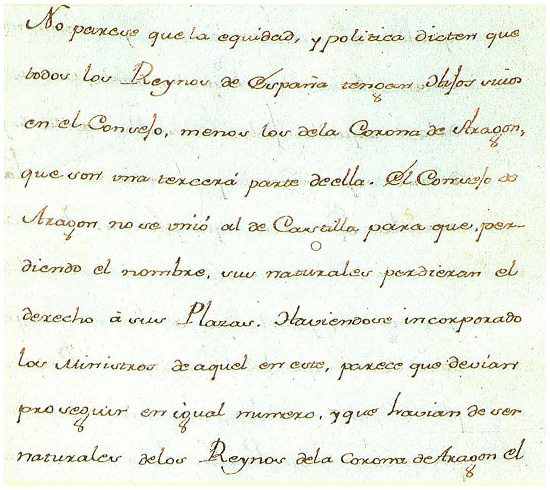 No parece que la equidad, y politica dicten que
todos los Reynos de España tengan Hijos suios
en el Consejo, menos los dela Corona de Aragon,
que son una tercerá parte de ella. El Consejo de
Aragon no se unió al de Castilla para que, per-
diendo el nombre, sus naturales perdieran el
derecho â sus Plazas. Haviendose incorporado
los Ministros de aquel en este, parece que devian
proseguir en igual numero, y que havian de ser
naturales delos Reynos dela Corona de Aragon el